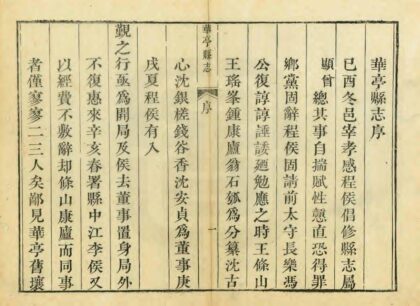 華亭縣志序
巳酉冬邑宰孝感程侯倡修縣志屬
顯曾總其事自揣賦性戇直恐得罪
鄉黨固辭程侯固請前太守長樂馮
公復諄諄諈諉廼勉應之時王條山
王瑤峯鍾康廬翁石瓠為分纂沈古
華亭縣志 序 一
心沈銀槎錢谷香沈安貞為董事庚
戌夏程侯有入
覲之行亟為開局及侯去董事置身局外
不復惠來辛亥春署縣中江李侯又
以經費不敷辭却條山康廬而同事
者僅寥寥二三人矣鄙見華亭舊壤